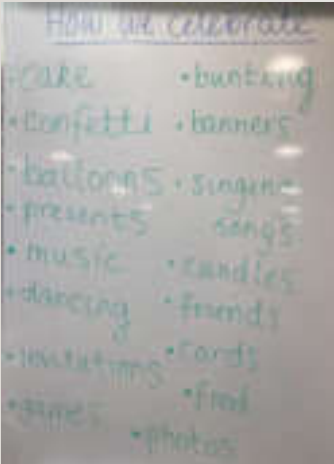 How we celebrate
• cake
• confetti
• balloons
• presents
• music
• dancing
• invitations
• games
• bunting
• banners
• singing
songs
• candles
• friends
• cards
• food
• photos